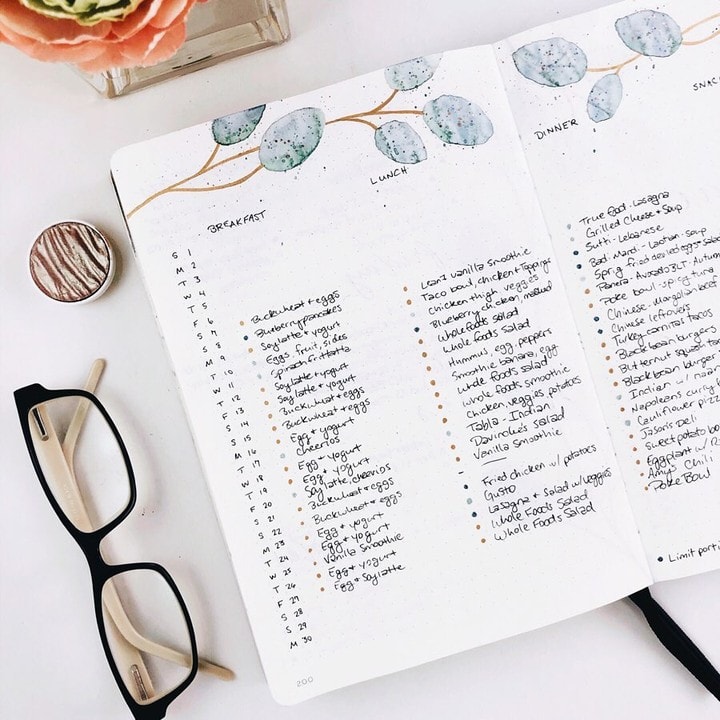 BREAKFAST
S 1
M 2
T 3
W 4
T 5
F 6
S 7
S 8
M 9
T 10
W 11
T 12
F 13
S 14
S 15
M 16
T 17
W 18
T 19
F 20
S 21
S 22
M 23
T 24
W 25
T 26
F 27
S 28
S 29
M 30
Buckwheat + eggs
Blueberry pancakes
Soylatte + yogurt
Eggs, fruit, sides
Spinach frittatta
Soylatte + yogurt
Soylatte + yogurt
Buckwheat + eggs
Buckwheat + eggs
Egg + yogurt
cheerios
Egg + yogurt
Egg + yogurt
Soylatte, cheerios
Buckwheat + eggs
Buckwheat + eggs
Egg + yogurt
Egg + yogurt
Vanilla Smoothie
Egg + yogurt
Egg + Soylatte
LUNCH
vanilla smoothie
Taco bowl, chicken + toppings
Chicken thigh, veggies
Blueberry chicken,
Whole foods salad
Whole foods salad
Hummus, egg, peppers
Smoothie banana, egg
Whole foods salad
Whole foods, smoothie
Chicken, veggies, potatoes
Tabla - Indian
Davinchi's salad
Vanilla Smoothie
—
Fried chicken w/ potatoes
Gusto
Lasagna + Salad w/ veggies
Whole Foods Salad
Whole Foods Salad
200
DINNER
True food - Lasagna
Grilled Cheese + Soup
Sutti - Lebanese
Bad. Mard - Laotian - soup
Spring fried deviled eggs salad
Panera - Avocado BLT, Autumn
Poke bowl - spicy tuna
Chinese - Mongolian beef
Chinese leftovers
Turkey carnitas tacos
Black bean burgers
Butternut squash
Black bean burger
Indian w/ naan
Napoleons curly
Cauliflower pizz
Jason's Deli
Sweet potato bo
Eggplant w/
Amy's Chili
Poke Bowl
SNAC
Limit porti